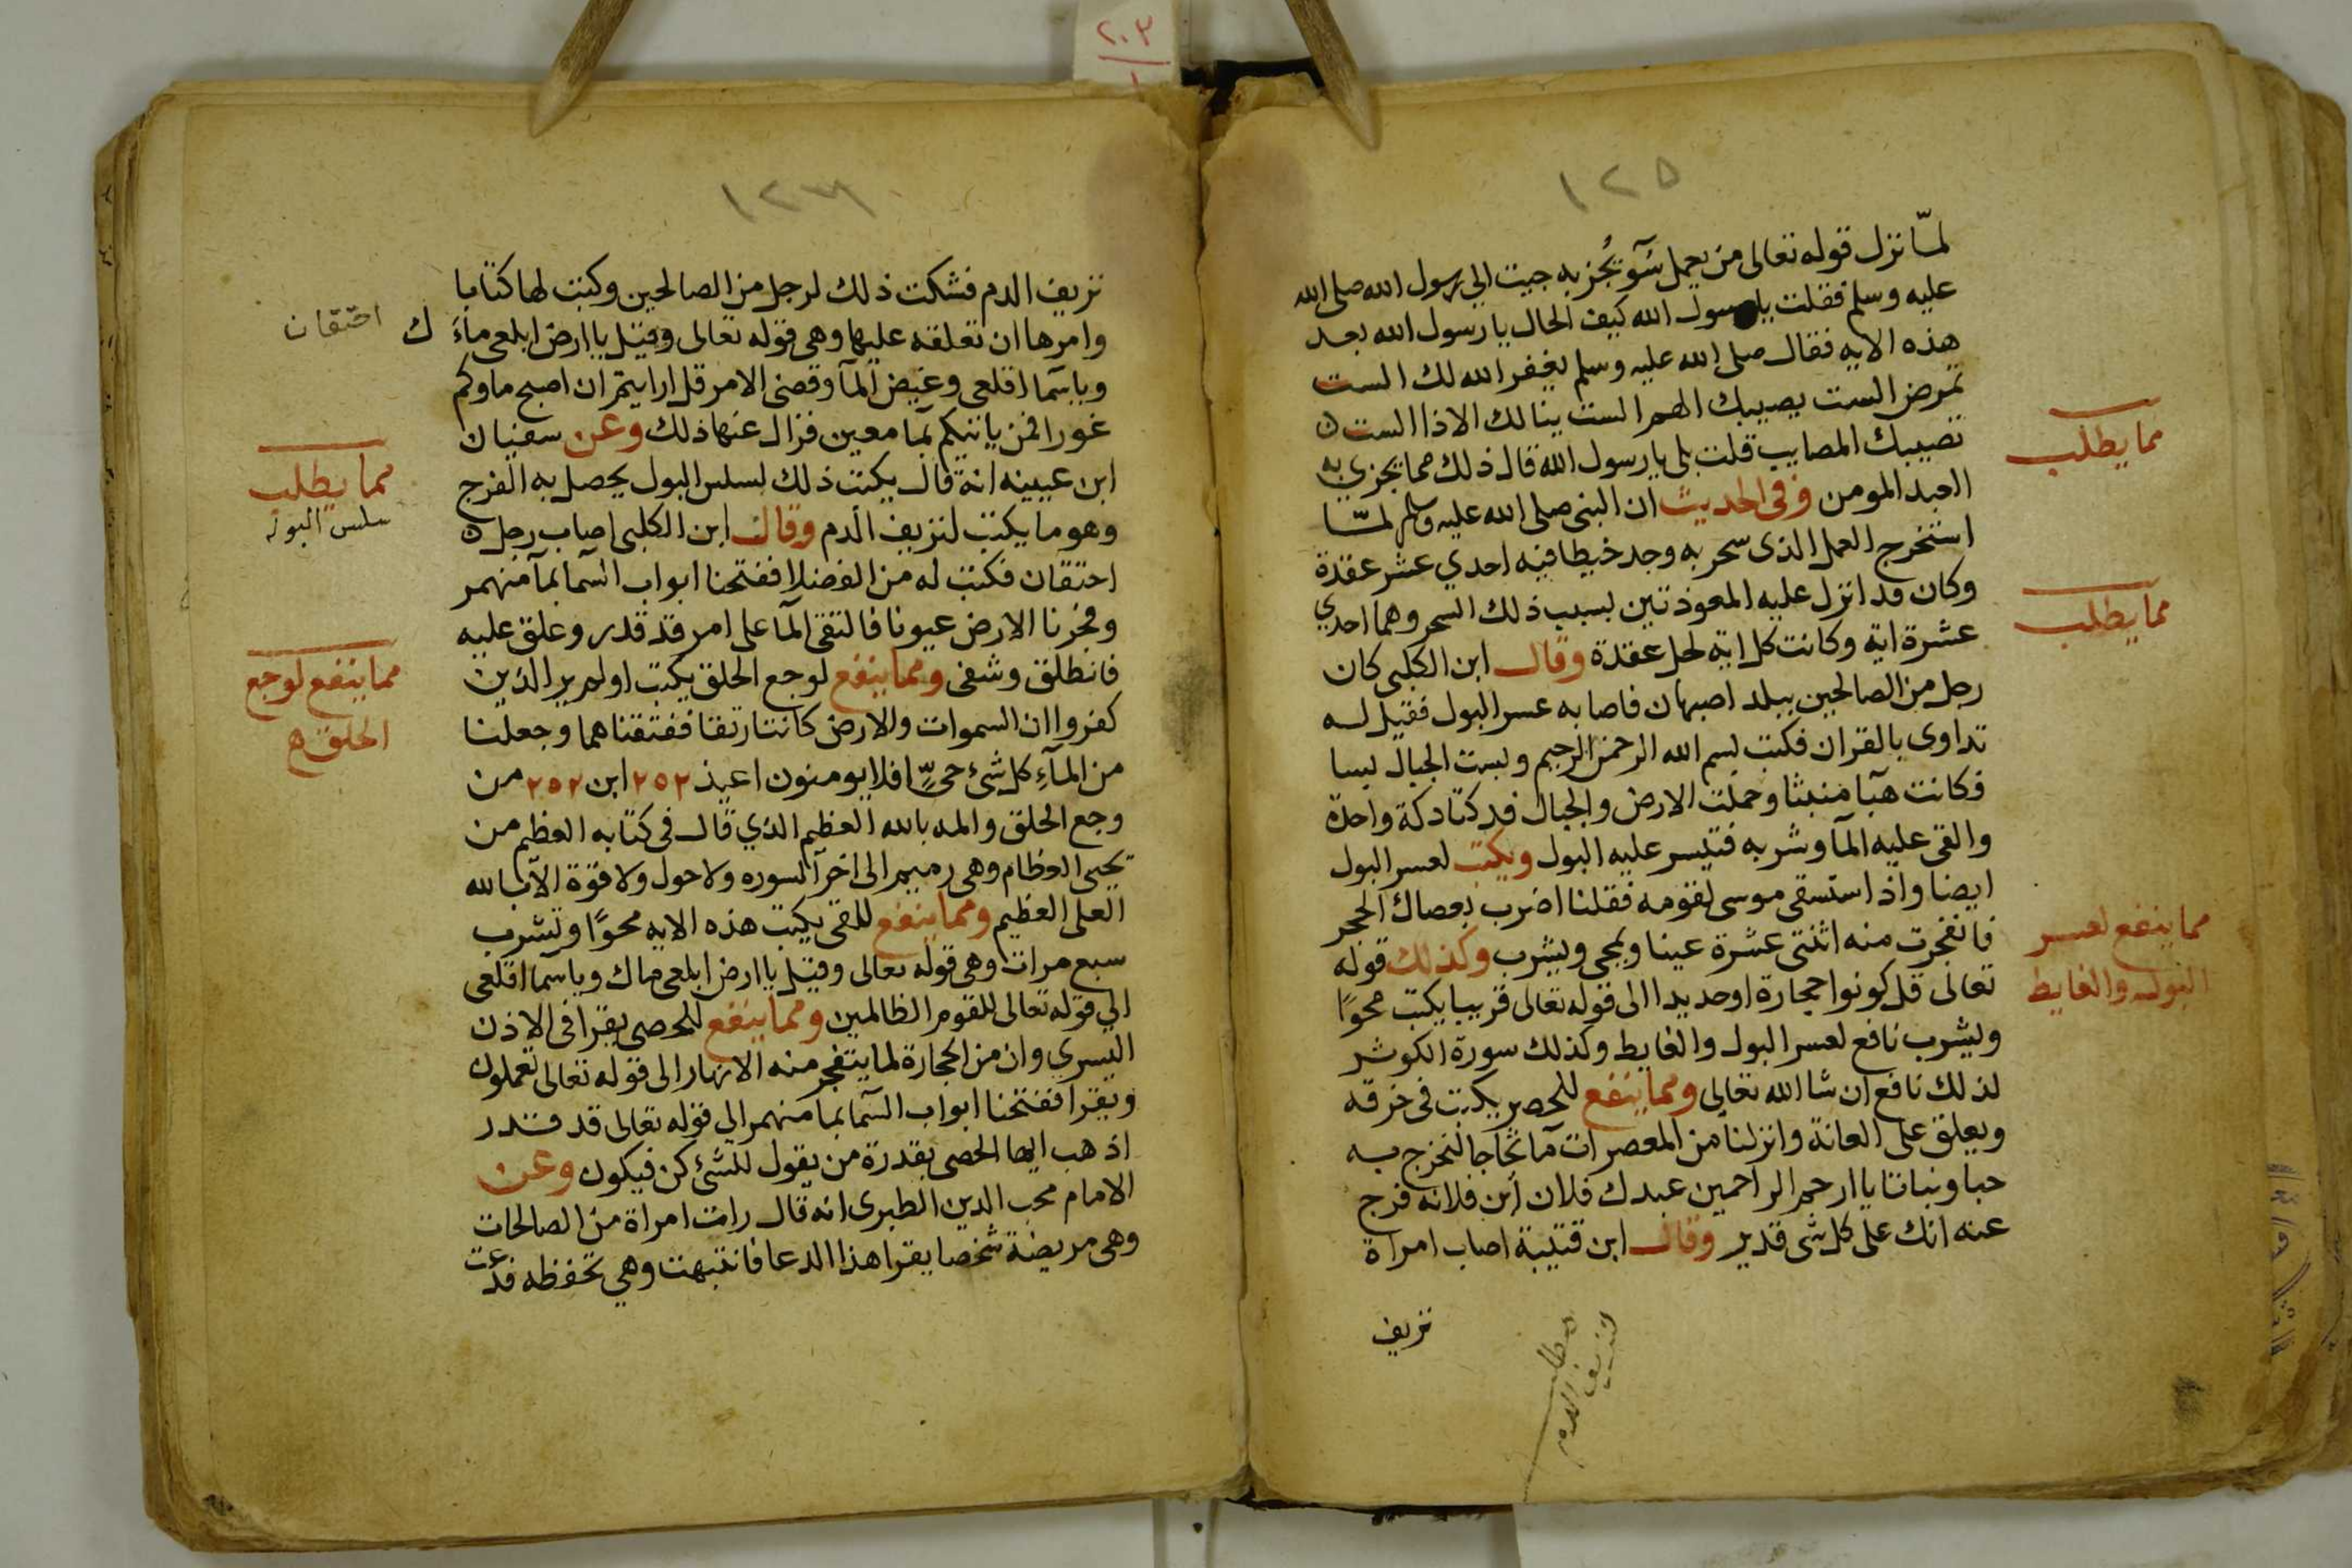 ١٢٥
لمّا نزل قوله تعالى من يعمل سوٓء يُجز به جيت الى رسول الله صلى الله
عليه وسلم فقلت يا رسول الله كيف الحال يا رسول الله بعد
هذه الايه فقال صلى الله عليه وسلم يغفر الله لك الست
تمرض الست يصيبك الهم الست ينالك الاذا الست
تصيبك المصايب قلت بلى يا رسول الله قال ذلك مما يجزي به
العبد المومن وفى الحديث ان النبى صلى الله عليه وسلم لمّا
استخرج العمل الذى سحر به وجد خيطا فيه احدي عشر عقدة
وكان قد انزل عليه المعوذتين بسبب ذلك السحر وهما احدي
عشرة اية وكانت كل اية لحل عقدة وقال ابن الكلبى كان
رجل من الصالحين ببلد اصبهان فاصابه عسر البول فقيل له
تداوى بالقران فكتب بسم الله الرحمن الرحيم وبست الجبال بسا
فكانت هبآ منبثا وحملت الارض والجبال فدكتا دكة واحدة
والقى عليه المآ وشربه فتيسر عليه البول ويكتب لعسر البول
ايضا واذ استسقى موسى لقومه فقلنا اضرب بعصاك الحجر
فانفجرت منه اثنتى عشرة عينا ويمحى ويشرب وكذلك قوله
تعالى قل كونوا حجارة او حديدا الى قوله تعالى قريبا يكتب محوًا
ويشرب نافع لعسر البول والغايط وكذلك سورة الكوثر
لذلك نافع ان شا الله تعالى ومما ينفع للحصر يكتب فى خرقه
ويعلق على العانة وانزلنا من المعصرات مآ ثجاجا لنخرج به
حبا ونباتا يا ارحم الراحمين عبدك فلان ابن فلانه فرج
عنه انك على كل شى قدير وقال ابن قتيبة اصاب امراة
نزيف
مطلب
لنزيف الدم
مما يطلب
مما يطلب
مما ينفع لعسر
البول والغايط
نزيف الدم فشكت ذلك لرجل من الصالحين وكتب لها كتابا
وامرها ان تعلقه عليها وهى قوله تعالى وقيل يا ارض ابلعى ماءَك
ويا سمآ اقلعى وغيض المآ وقضى الامر قل ارايتم ان اصبح ماوكم
غورا فمن ياتيكم بمآ معين فزال عنها ذلك وعن سفيان
ابن عيينه انه قال يكتب ذلك لسلس البول يحصل به الفرج
وهو ما يكتب لنزيف الدم وقال ابن الكلبى اصاب رجل
احتقان فكتب له من الفضلا ففتحنا ابواب السمآ بمآ منهمر
وفجرنا الارض عيونا فالتقى المآ على امر قد قدر وعلق عليه
فانطلق وشفى ومما ينفع لوجع الحلق يكتب اولم ير الذين
كفروا ان السموات والارض كانتا رتقا ففتقناهما وجعلنا
من المآءِ كل شىء حىٍّ افلا يومنون اعيذ ٢٥٢ ابن ٢٥٢ من
وجع الحلق والمه بالله العظيم الذي قال فى كتابه العظيم من
يحيى العظام وهى رميم الى اخر السوره ولا حول ولا قوة الا بالله
العلى العظيم ومما ينفع للقى يكتب هذه الايه محوًا وتشرب
سبع مرات وهى قوله تعالى وقيل يا ارض ابلعى ماك ويا سمآ اقلعى
الى قوله تعالى للقوم الظالمين ومما ينفع للحصى يقرا فى الاذن
اليسري وان من الحجارة لما يتفجر منه الانهار الى قوله تعالى تعملون
ويقرا ففتحنا ابواب السمآ بمآ منهمر الى قوله تعالى قد قدر
اذهب ايها الحصى بقدرة من يقول للشئ كن فيكون وعن
الامام محب الدين الطبرى انه قال رات امراة من الصالحات
وهى مريضة شخصا يقرا هذا الدعا فانتبهت وهي تحفظه فدعت
احتقان
مما يطلب
سلس البول
مما ينفع لوجع
الحلق